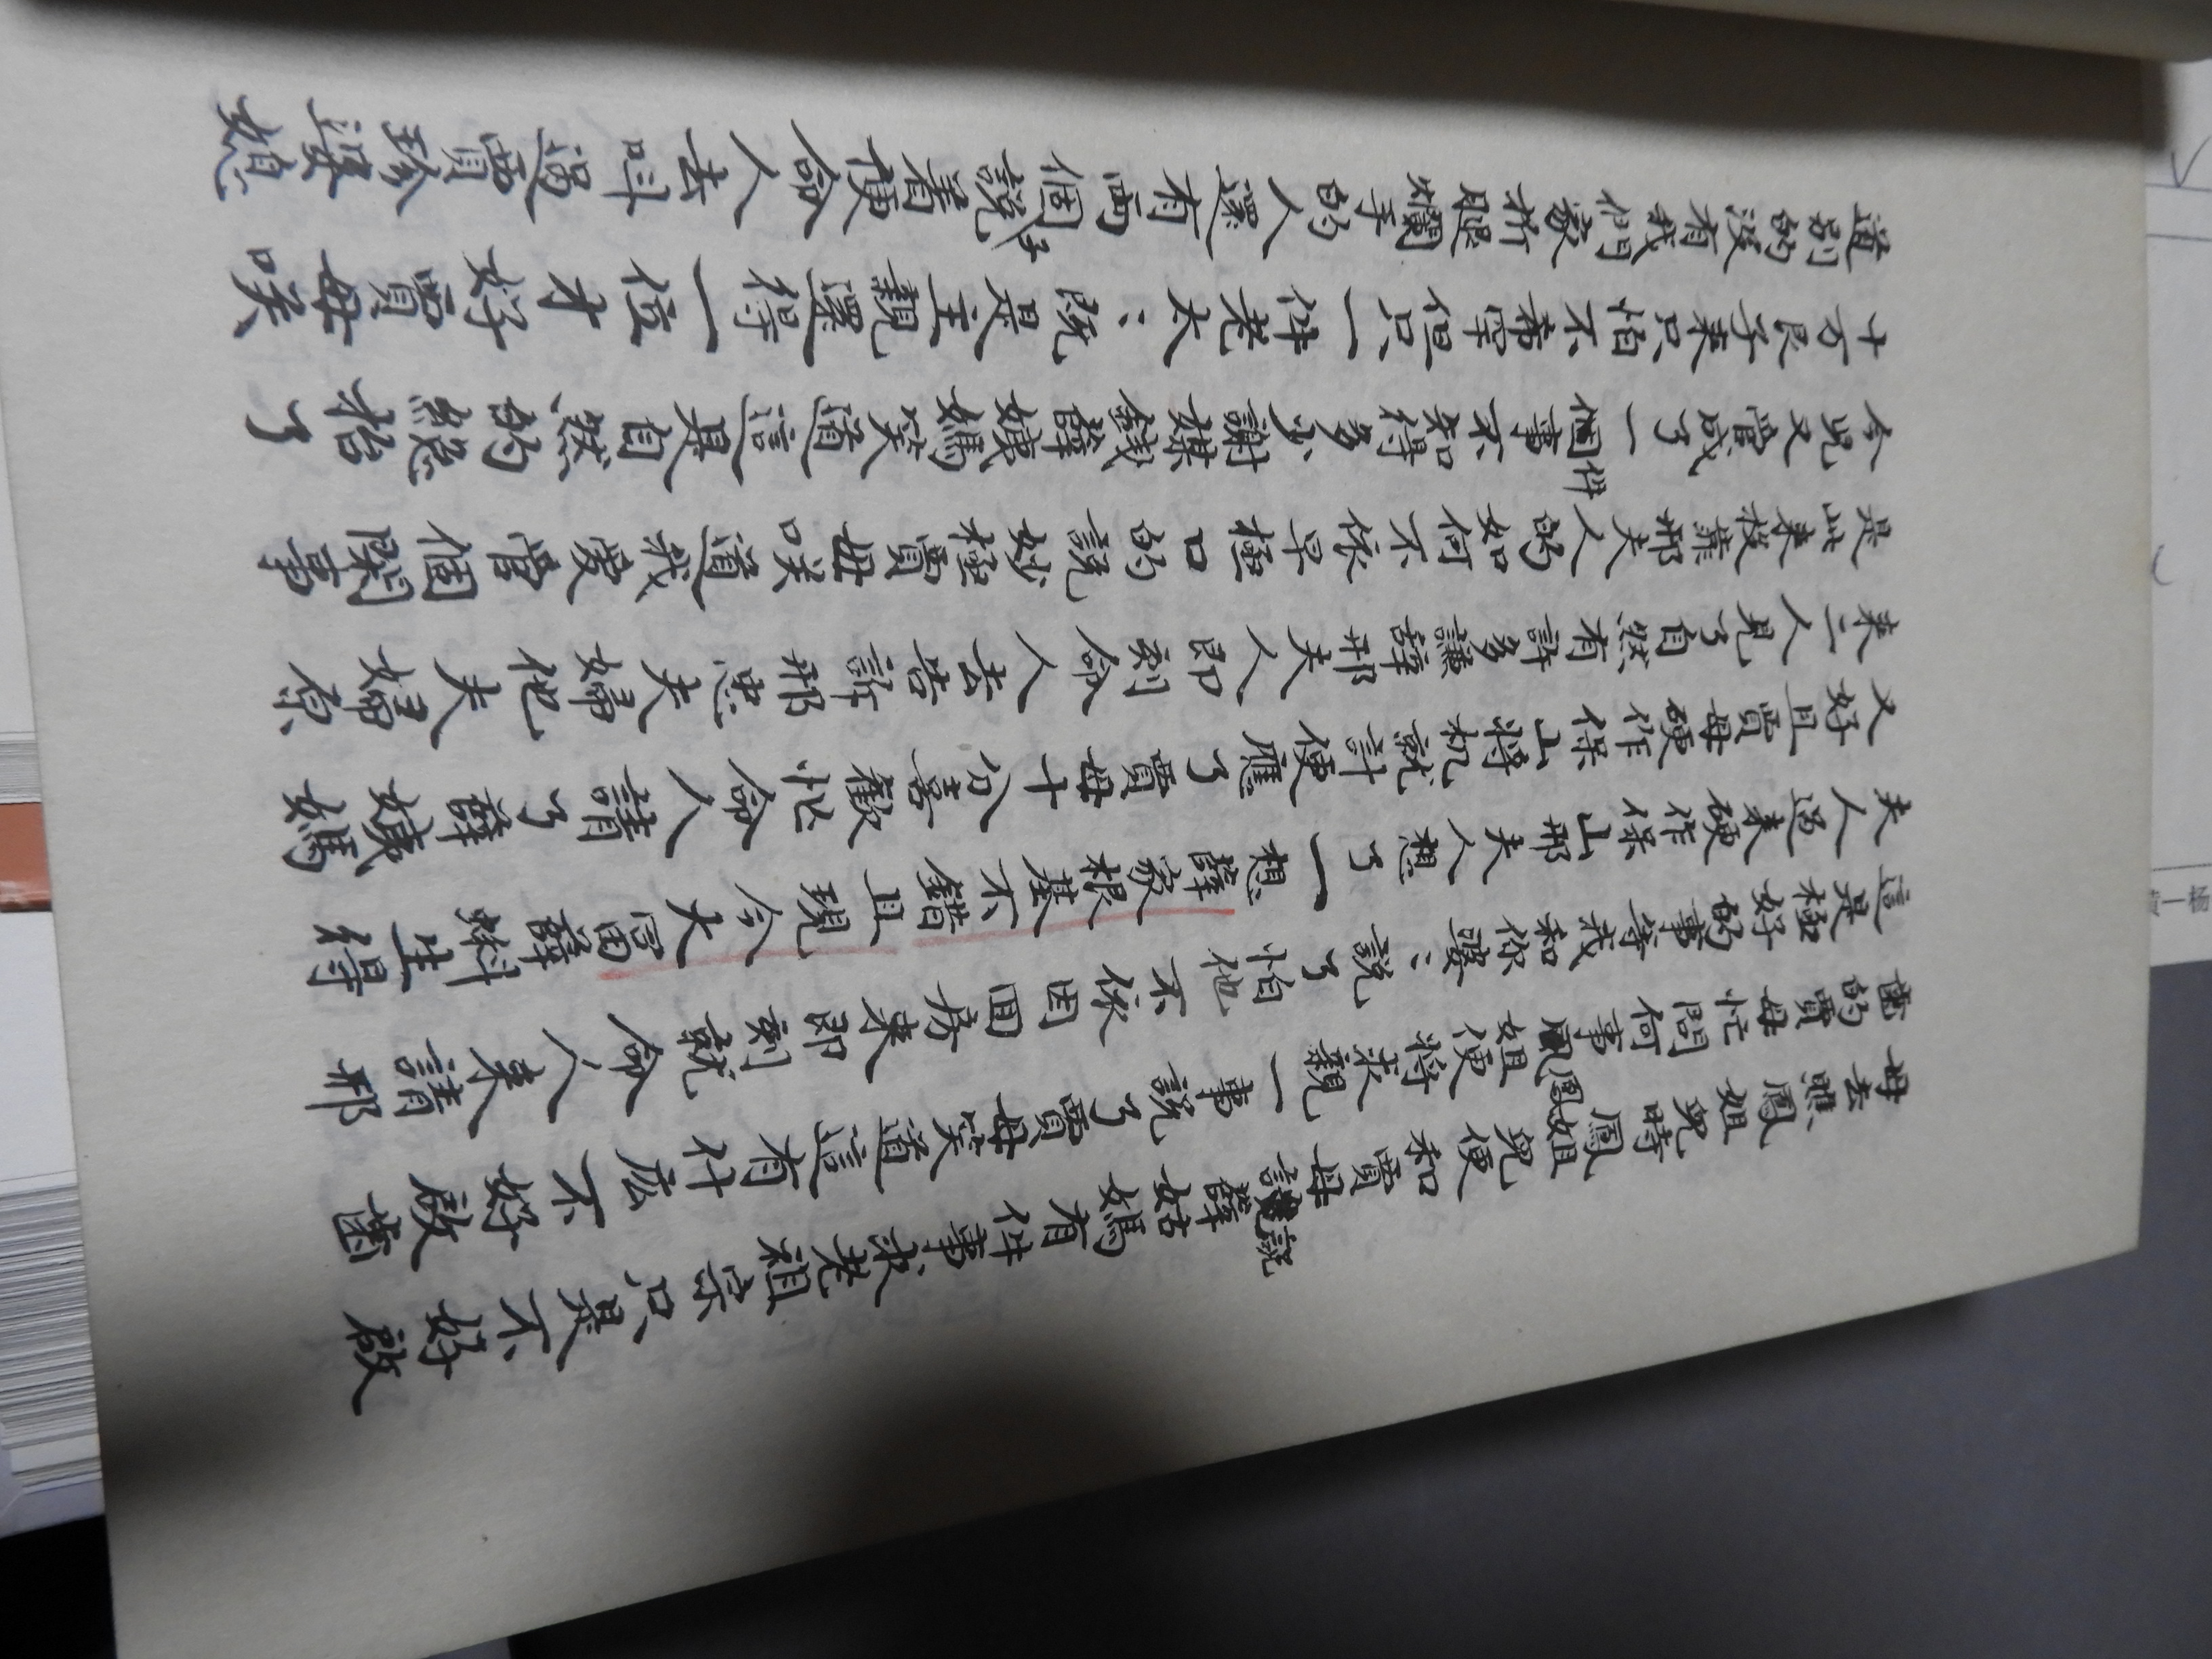 母去瞧鳳姐兒時鳳姐兒便和賈母説薛姑媽有件事求老祖宗只是不好啟
鳳
説
齒的賈母忙問何事鳳姐便將求親一事説了賈母笑道這有什庅不好啟齒
這是極好的事等我和你婆〻説了怕他不依因回房來即刻就命人來請邢
夫人過來硬作保山邢夫人想了一想薛家根基不錯且現今大富薛蝌生得
又好且賈母硬作保山將机就計便應了賈母十分喜歡忙命人請了薛姨媽
來二人見了自然有許多謙辭邢夫人即刻命人去告訴邢忠夫婦他夫婦原
是此來投靠邢夫人的如何不依早極口的説妙極賈母笑道我愛管個閑事
今兒又管成了一個事不知得多少謝媒錢薛姨媽笑道這是自然的総抬了
件
十万艮子來只怕不希罕但只一件老太〻既是主親還得一位才好賈母笑
道别的沒有我們家折腿爛手的人還有兩個説着便命人去叫過賈珍婆媳
一杨